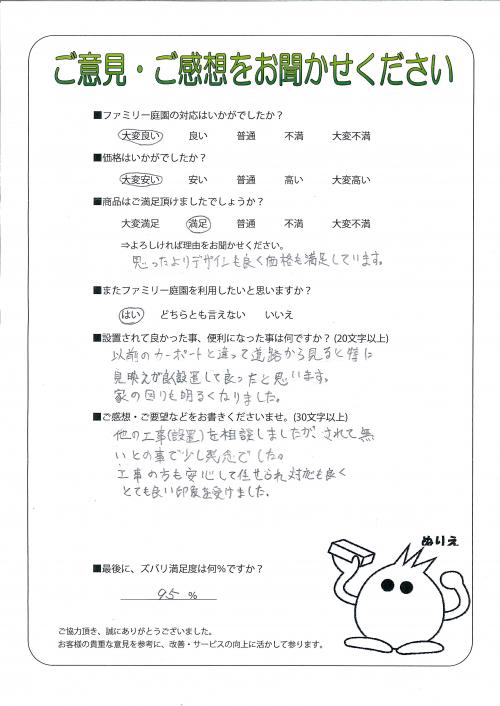 ご意見・ご感想をお聞かせください
■ファミリー庭園の対応はいかがでしたか？
大変良い 良い 普通 不満 大変不満
■価格はいかがでしたか？
大変安い 安い 普通 高い 大変高い
■商品はご満足頂けましたでしょうか？
大変満足 満足 普通 不満 大変不満
⇒よろしければ理由をお聞かせください。
思ったよりデザインも良く価格も満足しています。
■またファミリー庭園を利用したいと思いますか？
はい どちらとも言えない いいえ
■設置されて良かった事、便利になった事は何ですか？(20文字以上)
以前のカーポートと違って道路から見ると特に
見映えが良く設置して良ったと思います。
家の回りも明るくなりました。
■ご感想・ご要望などをお書きくださいませ。(30文字以上)
他の工事(設置)を相談しましたが、されて無
いとの事で少し残念でした。
工事の方も安心して任せられ対応も良く
とても良い印象を受けました。
ぬりえ
■最後に、ズバリ満足度は何％ですか？
95 %
ご協力頂き、誠にありがとうございました。
お客様の貴重な意見を参考に、改善・サービスの向上に活かして参ります。